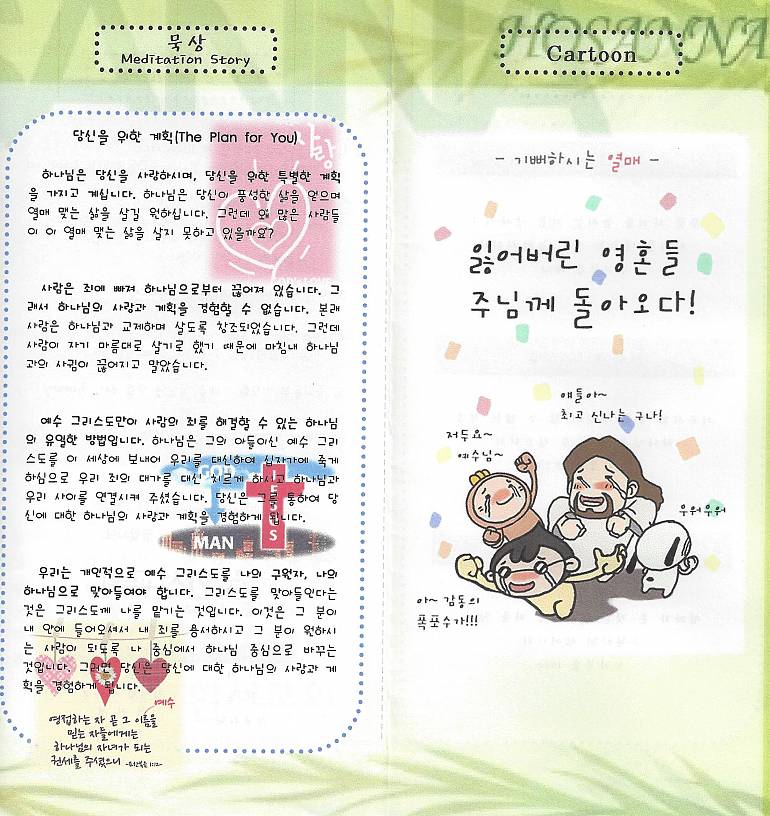 묵상
Meditation Story
당신을 위한 계획(The Plan for You)
하나님은 당신을 사랑하시며, 당신을 위한 특별한 계획
을 가지고 계십니다. 하나님은 당신이 풍성한 삶을 얻으며
열매 맺는 삶을 살길 원하십니다. 그런데 왜 많은 사람들
이 이 열매 맺는 삶을 살지 못하고 있을까요?
사람은 죄에 빠져 하나님으로부터 끊어져 있습니다. 그
래서 하나님의 사랑과 계획을 경험할 수 없습니다. 본래
사람은 하나님과 교제하며 살도록 창조되었습니다. 그런데
사람이 자기 마음대로 살기로 했기 때문에 마침내 하나님
과의 사귐이 끊어지고 말았습니다.
예수 그리스도만이 사람의 죄를 해결할 수 있는 하나님
의 유일한 방법입니다. 하나님은 그의 아들이신 예수 그리
스도를 이 세상에 보내어 우리를 대신하여 십자가에 죽게
하심으로 우리 죄의 대가를 대신 치르게 하시고 하나님과
우리 사이를 연결시켜 주셨습니다. 당신은 그를 통하여 당
신에 대한 하나님의 사랑과 계획을 경험하게 됩니다.
GOD
JESUS
MAN
우리는 개인적으로 예수 그리스도를 나의 구원자, 나의
하나님으로 맞아들여야 합니다. 그리스도를 맞아들인다는
것은 그리스도께 나를 맡기는 것입니다. 이것은 그 분이
내 안에 들어오셔서 내 죄를 용서하시고 그 분이 원하시
는 사람이 되도록 나 중심에서 하나님 중심으로 바꾸는
것입니다. 그러면 당신은 당신에 대한 하나님의 사랑과 계
획을 경험하게 됩니다.
예수
영접하는 자 곧 그 이름을
믿는 자들에게는
하나님의 자녀가 되는
권세를 주셨으니
사랑
HOSANNA
Cartoon
- 기뻐하시는 열매 -
잃어버린 영혼들
주님께 돌아오다!
얘들아~
최고 신나는 구나!
저두요~
예수님~
우워우워
아~ 감동의
폭포수가!!!